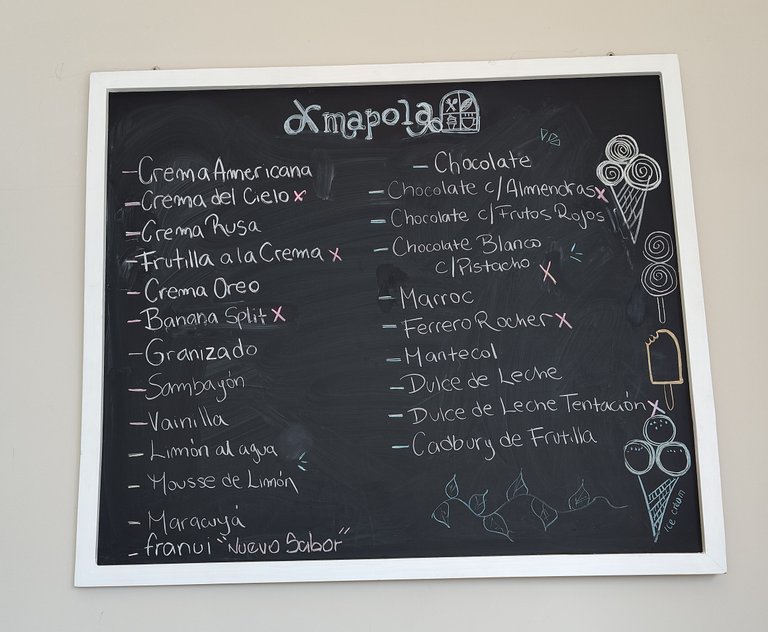 Amapola
- Crema Americana
- Crema del Cielo x
- Crema Rusa
- Frutilla a la Crema x
- Crema Oreo
- Banana Split x
- Granizado
- Sambayón
- Vainilla
- Limón al agua
- Mousse de Limón
- Maracuyá
- franui "Nuevo Sabor"
- Chocolate
- Chocolate c/Almendras x
- Chocolate c/Frutos Rojos
- Chocolate Blanco
c/Pistacho x
- Marroc
- Ferrero Rocher x
- Mantecol
- Dulce de Leche
- Dulce de Leche Tentación x
- Cadbury de Frutilla
ice cream